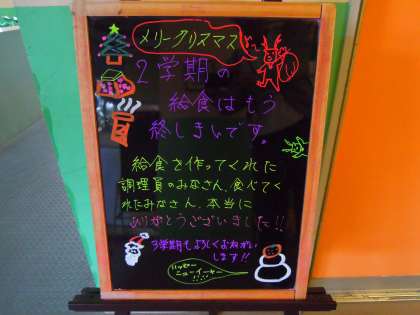 メリークリスマス
2学期の
給食はもう
終しまいです。
給食を作ってくれた
調理員のみなさん、食べてく
れたみなさん、本当に
ありがとうございました!!
3学期もよろしくおねがい
します!!
ハッピー
ニューイヤー